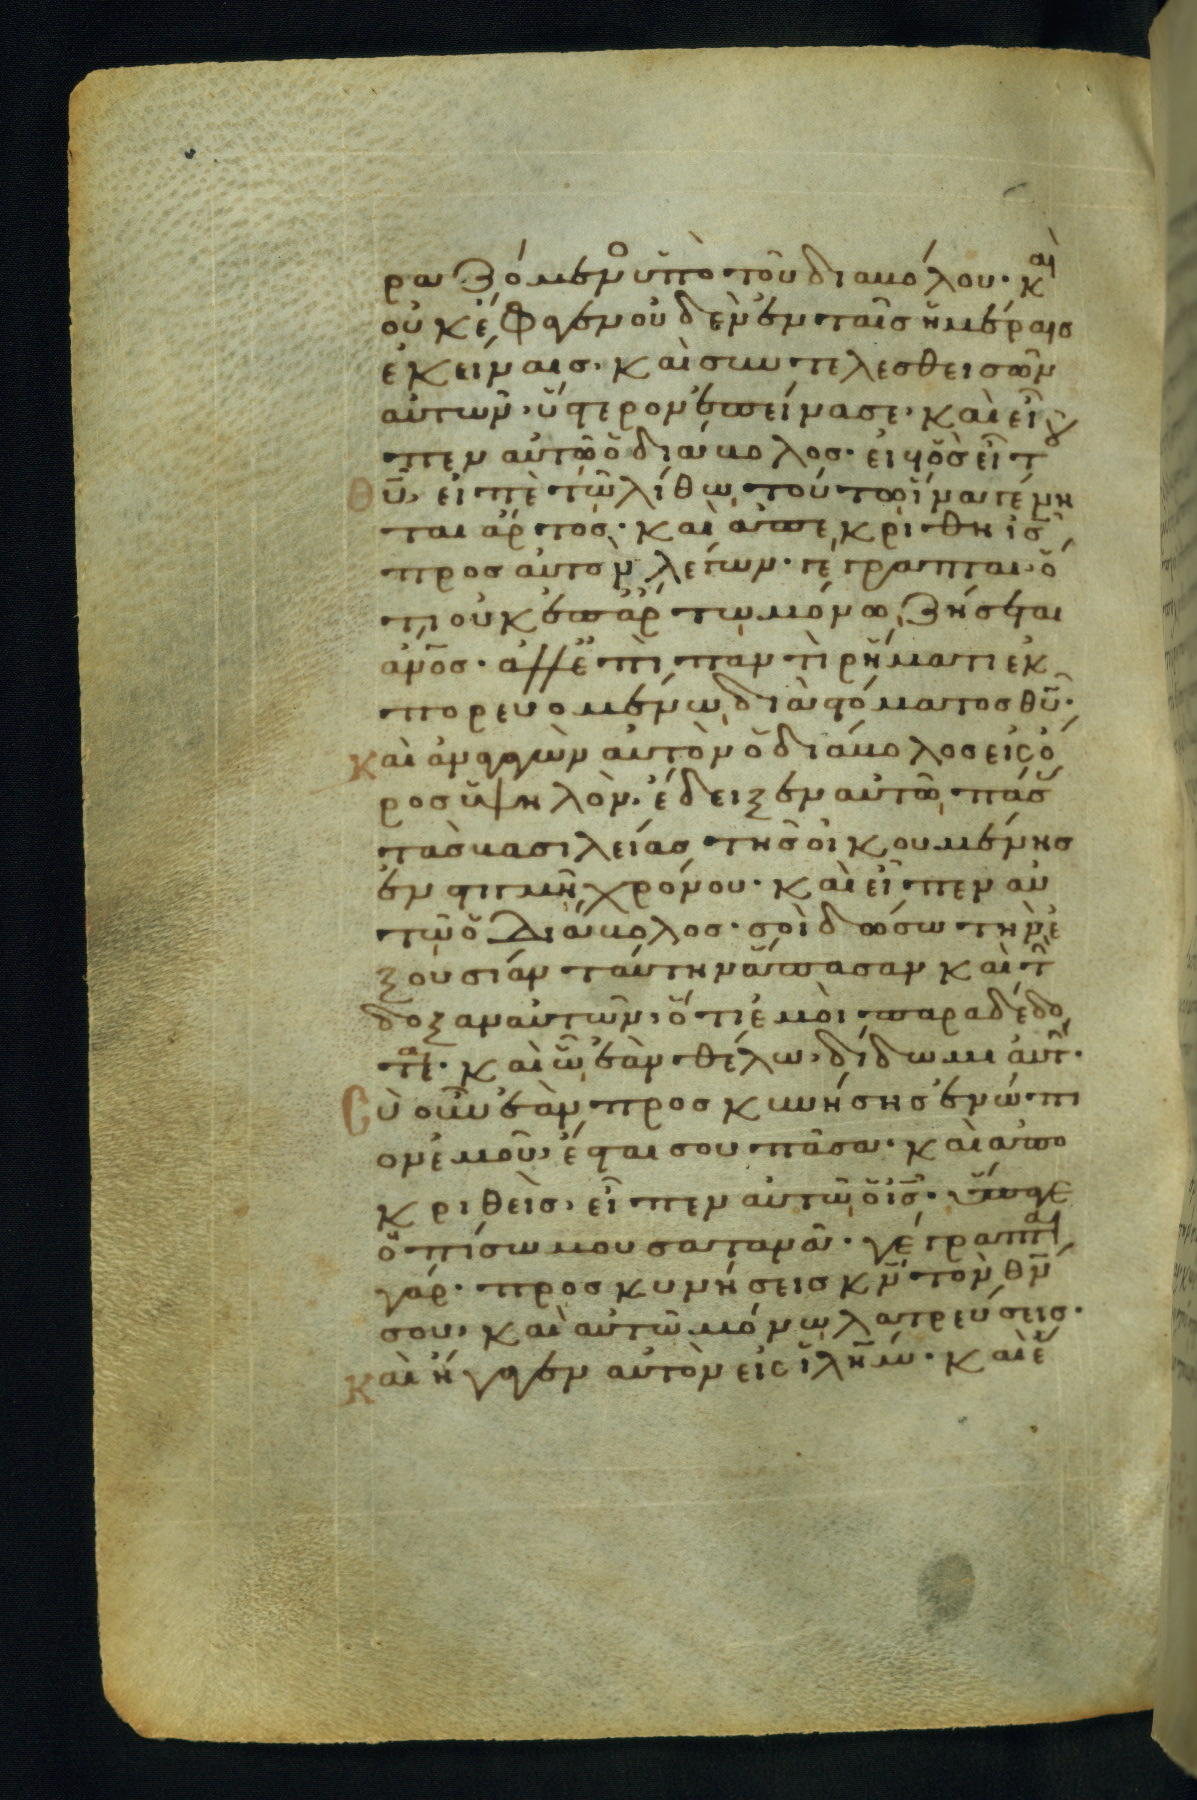 ραζόμενο ὑπὸ τοῦ διαβόλου· καὶ
οὐκ ἔφαγεν οὐδὲν ἐν ταῖς ἡμέραις
ἐκείναις· καὶ συντελεσθεισῶν
αὐτῶν, ὕστερον ἐπείνασε· καὶ εἶ
πεν αὐτῶ ὁ διάβολος· εἰ υὸς εἶ τοῦ
θῦ, εἰπὲ τῶ λίθω τούτω ἵνα γένη
ται ἄρτος· καὶ ἀπεκρίθη ἰς
προς αὐτὸν λέγων· γέγραπται ὅ
τι οὐκ ἐπ' ἄρτω μόνω ζήσεται
ἀνος· ἀλλ' ἐπὶ παντὶ ρήματι ἐκ
πορευομένω διὰ στόματος θῦ·
Καὶ ἀναγαγὼν αὐτὸν ὁ διάβολος εἰς ὄ
ρος ὑψηλὸν, ἔδειξεν αὐτῶ πάσ
τὰς βασιλείας τῆς οἰκουμένης
ἐν στιγμῆ χρόνου· καὶ εἶπεν αὐ
τῶ ὁ διάβολος· σοὶ δώσω τὴν ἐ
ξουσίαν ταύτην ἅπασαν καὶ τὴν
δόξαν αὐτῶν, ὅτι ἐμοὶ παραδέδο
ται· καὶ ὧ ἐὰν θέλω, δίδωμι αὐτ·
Σὺ οὖν ἐὰν προσκυνήσης ἐνώπι
ον ἐμοῦ, ἔσται σου πᾶσα· καὶ ἀπο
κριθεὶς, εἶπεν αὐτῶ ὁ ἰς· ὕπαγε
ὀπίσω μου σατανᾶ· γέγραπται
γάρ· προσκυνήσεις κν τὸν θν
σου, καὶ αὐτῶ μόνω λατρεύσεις·
Καὶ ἤγαγεν αὐτὸν εἰς ἰλημ· καὶ ἔ